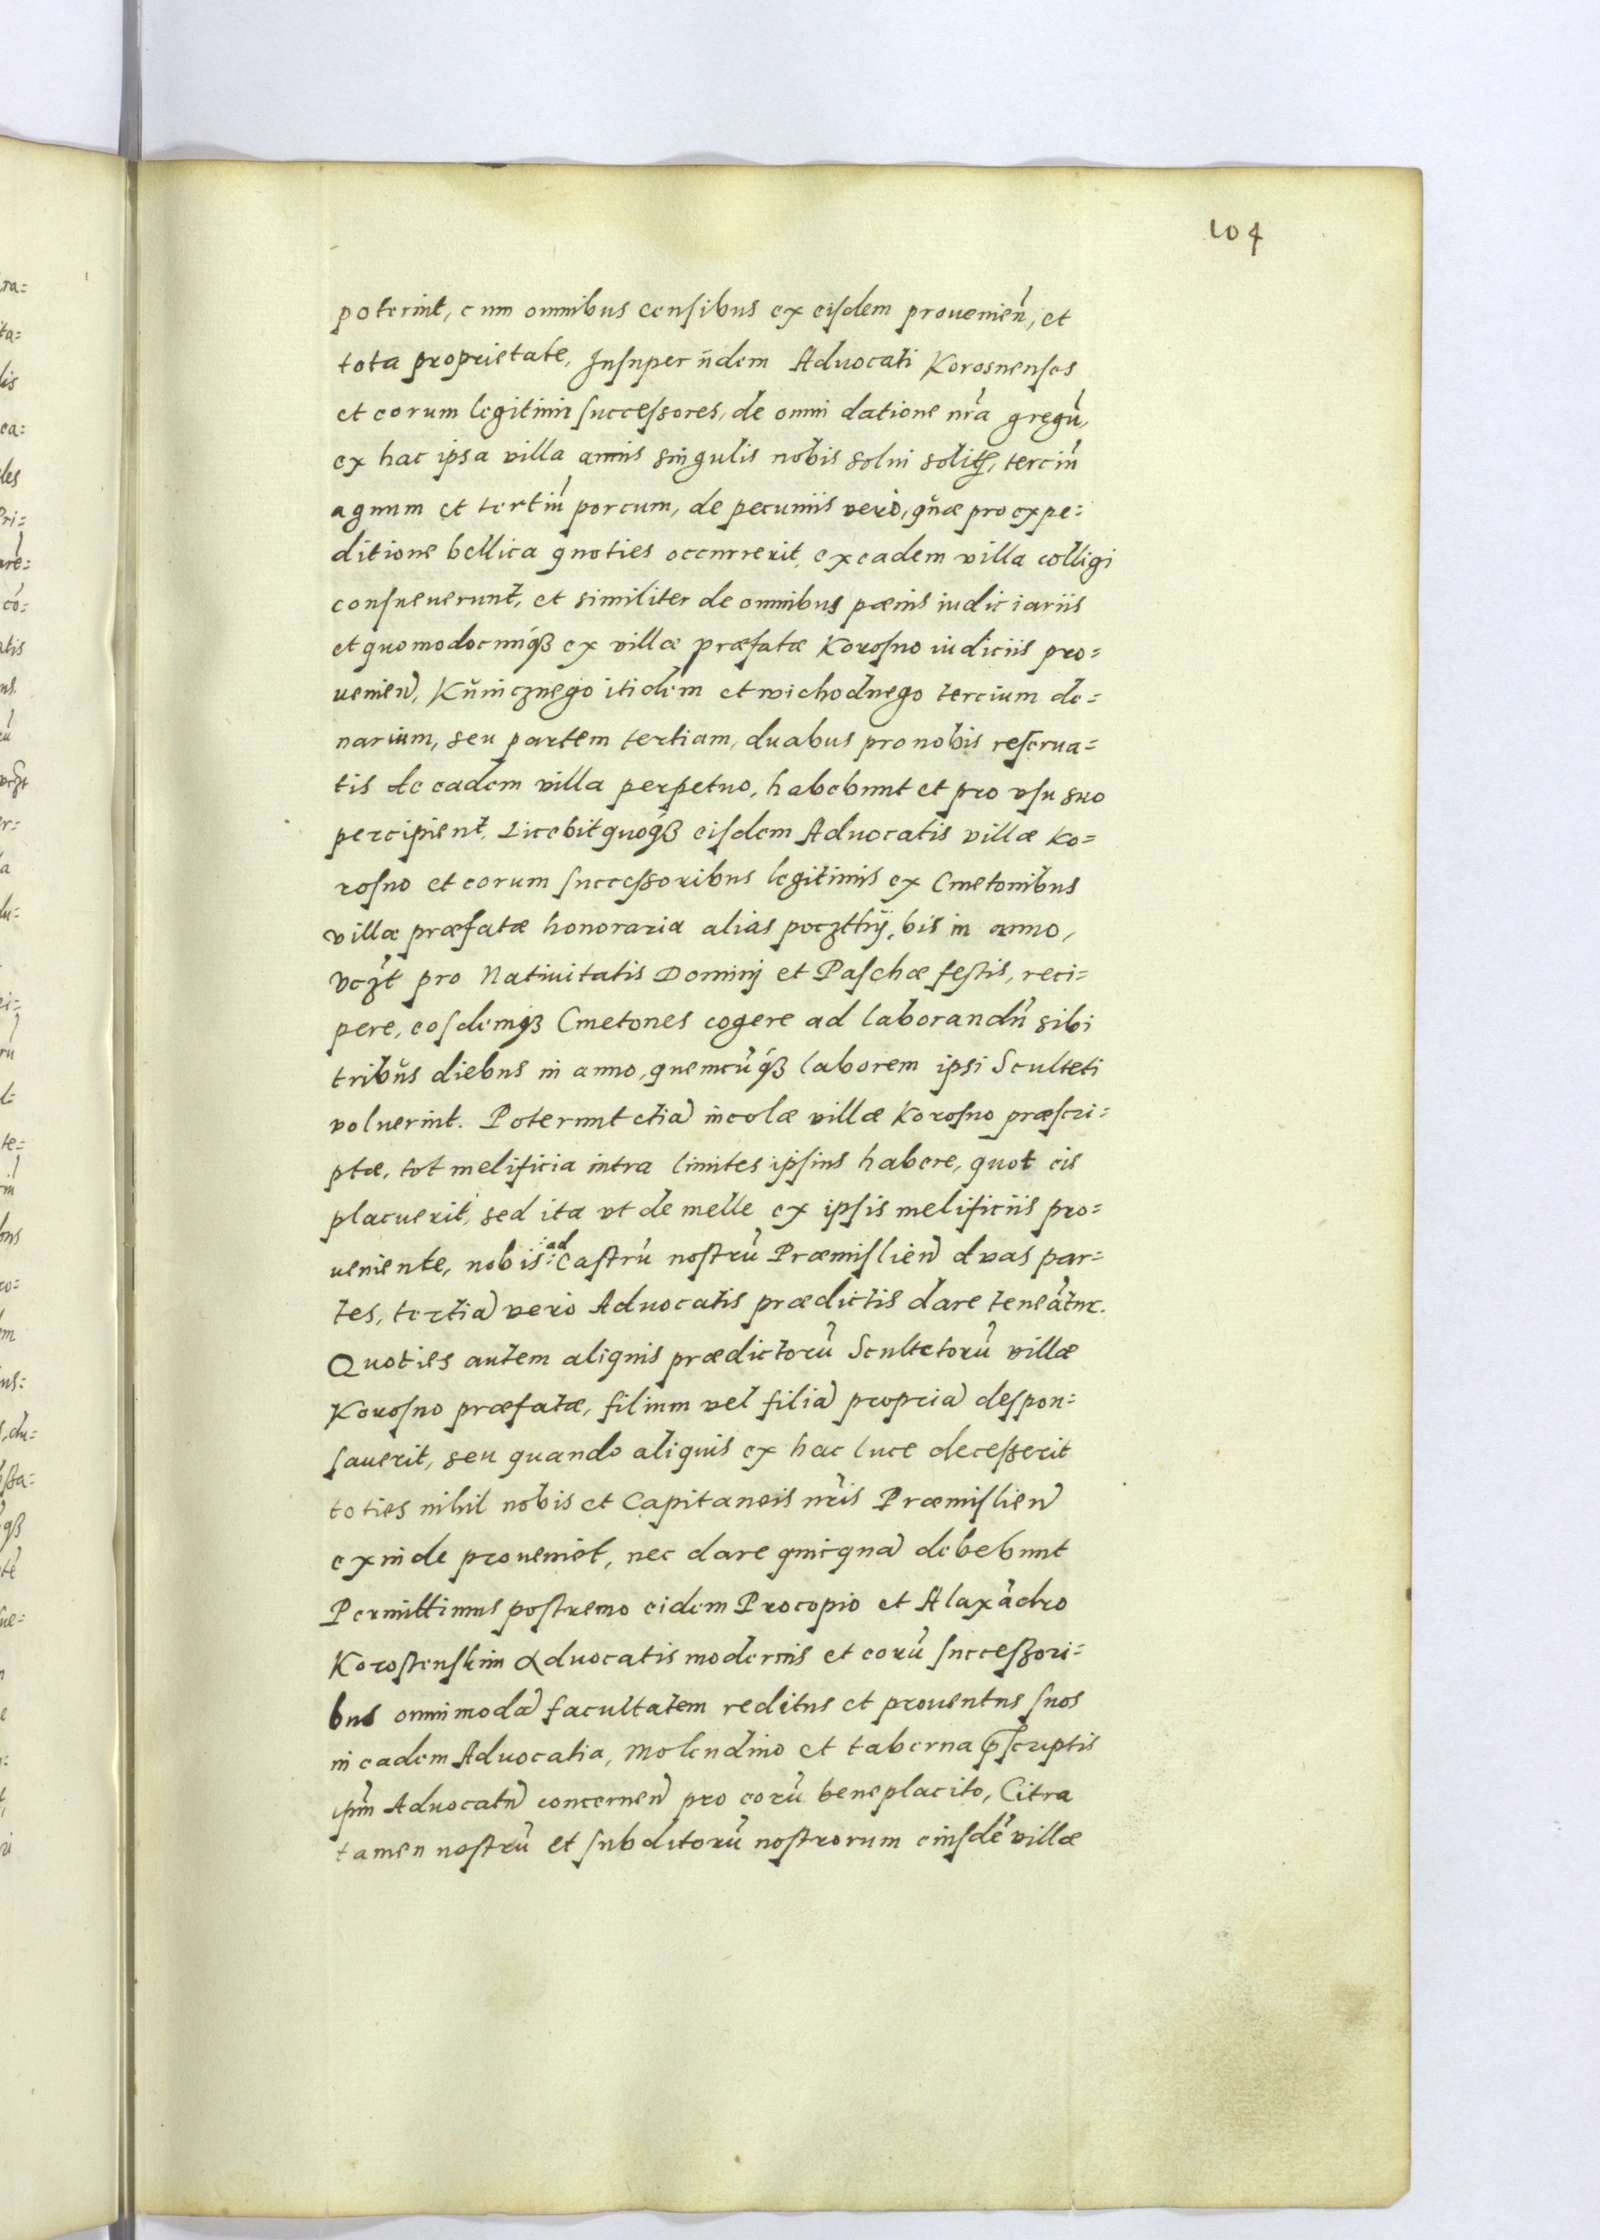 104
poterint, cum omnibus censibus ex eisdem prouenien̄, et
tota proprietate, Insuper ijdem Aduocati Korosnenses
et eorum legitimi successores, de omni datione nr̄a gregū,
ex hac ipsa villa annis singulis nobis solui solitꝫ, terciū
agnum et tertiū porcum, de pecuniis verò, quæ pro expe=
ditione bellica quoties occurrerit, ex eadem villa colligi
consueuerunt, et similiter de omnibus pœnis iudiciariis
et quomodocunqꝫ ex villæ præfatæ Korosno iudiciis pro=
uenien̄, Kŭnicznego itidem et wichodnego tercium de=
narium, seu partem tertiam, duabus pro nobis reserua=
tis de eadem villa perpetuo, habebunt et pro vsu suo
percipient. Licebit quoqꝫ eisdem Aduocatis villæ Ko=
rosno et eorum successoribus legitimis ex Cmetonibus
villæ præfatæ honoraria alias poczthÿ, bis in anno,
vczt pro Natiuitatis Dominj et Paschæ festis, reci=
pere, eosdemqꝫ Cmetones cogere ad laborandū sibi
tribŭs diebus in anno, quemcūqꝫ laborem ipsi Sculteti
voluerint. Poterunt etiā incolæ villæ Korosno præscri=
ptæ, tot melificia intra limites ipsius habere, quot eis
placuerit, sed ita vt de melle ex ipsis melificiis pro=
ueniente, nobis :ad: Castrū nostrū Præmislien̄ duas par=
tes, tertiā verò Aduocatis prædictis dare teneātur.
Quoties autem aliquis prædictorū Scultetorū villæ
Korosno præfatæ, filium vel filiā propriā despon=
sauerit, seu quando aliquis ex hac luce decesserit
toties nihil nobis et Capitaneis nr̄is Præmislien̄
exinde proueniet, nec dare quicquā debebunt
Permittimus postremo eidem Procopio et Alaxādro
Korostenskim Aduocatis modernis et eorū successori=
bus omnimodā facultatem reditus et prouentus suos
in eadem Aduocatia, Molendino et taberna p̄scriptis
ipsū Aduocatū concernen̄ pro eorū beneplacito, Citra
tamen nostrū et subditorū nostrorum eiusdē villæ